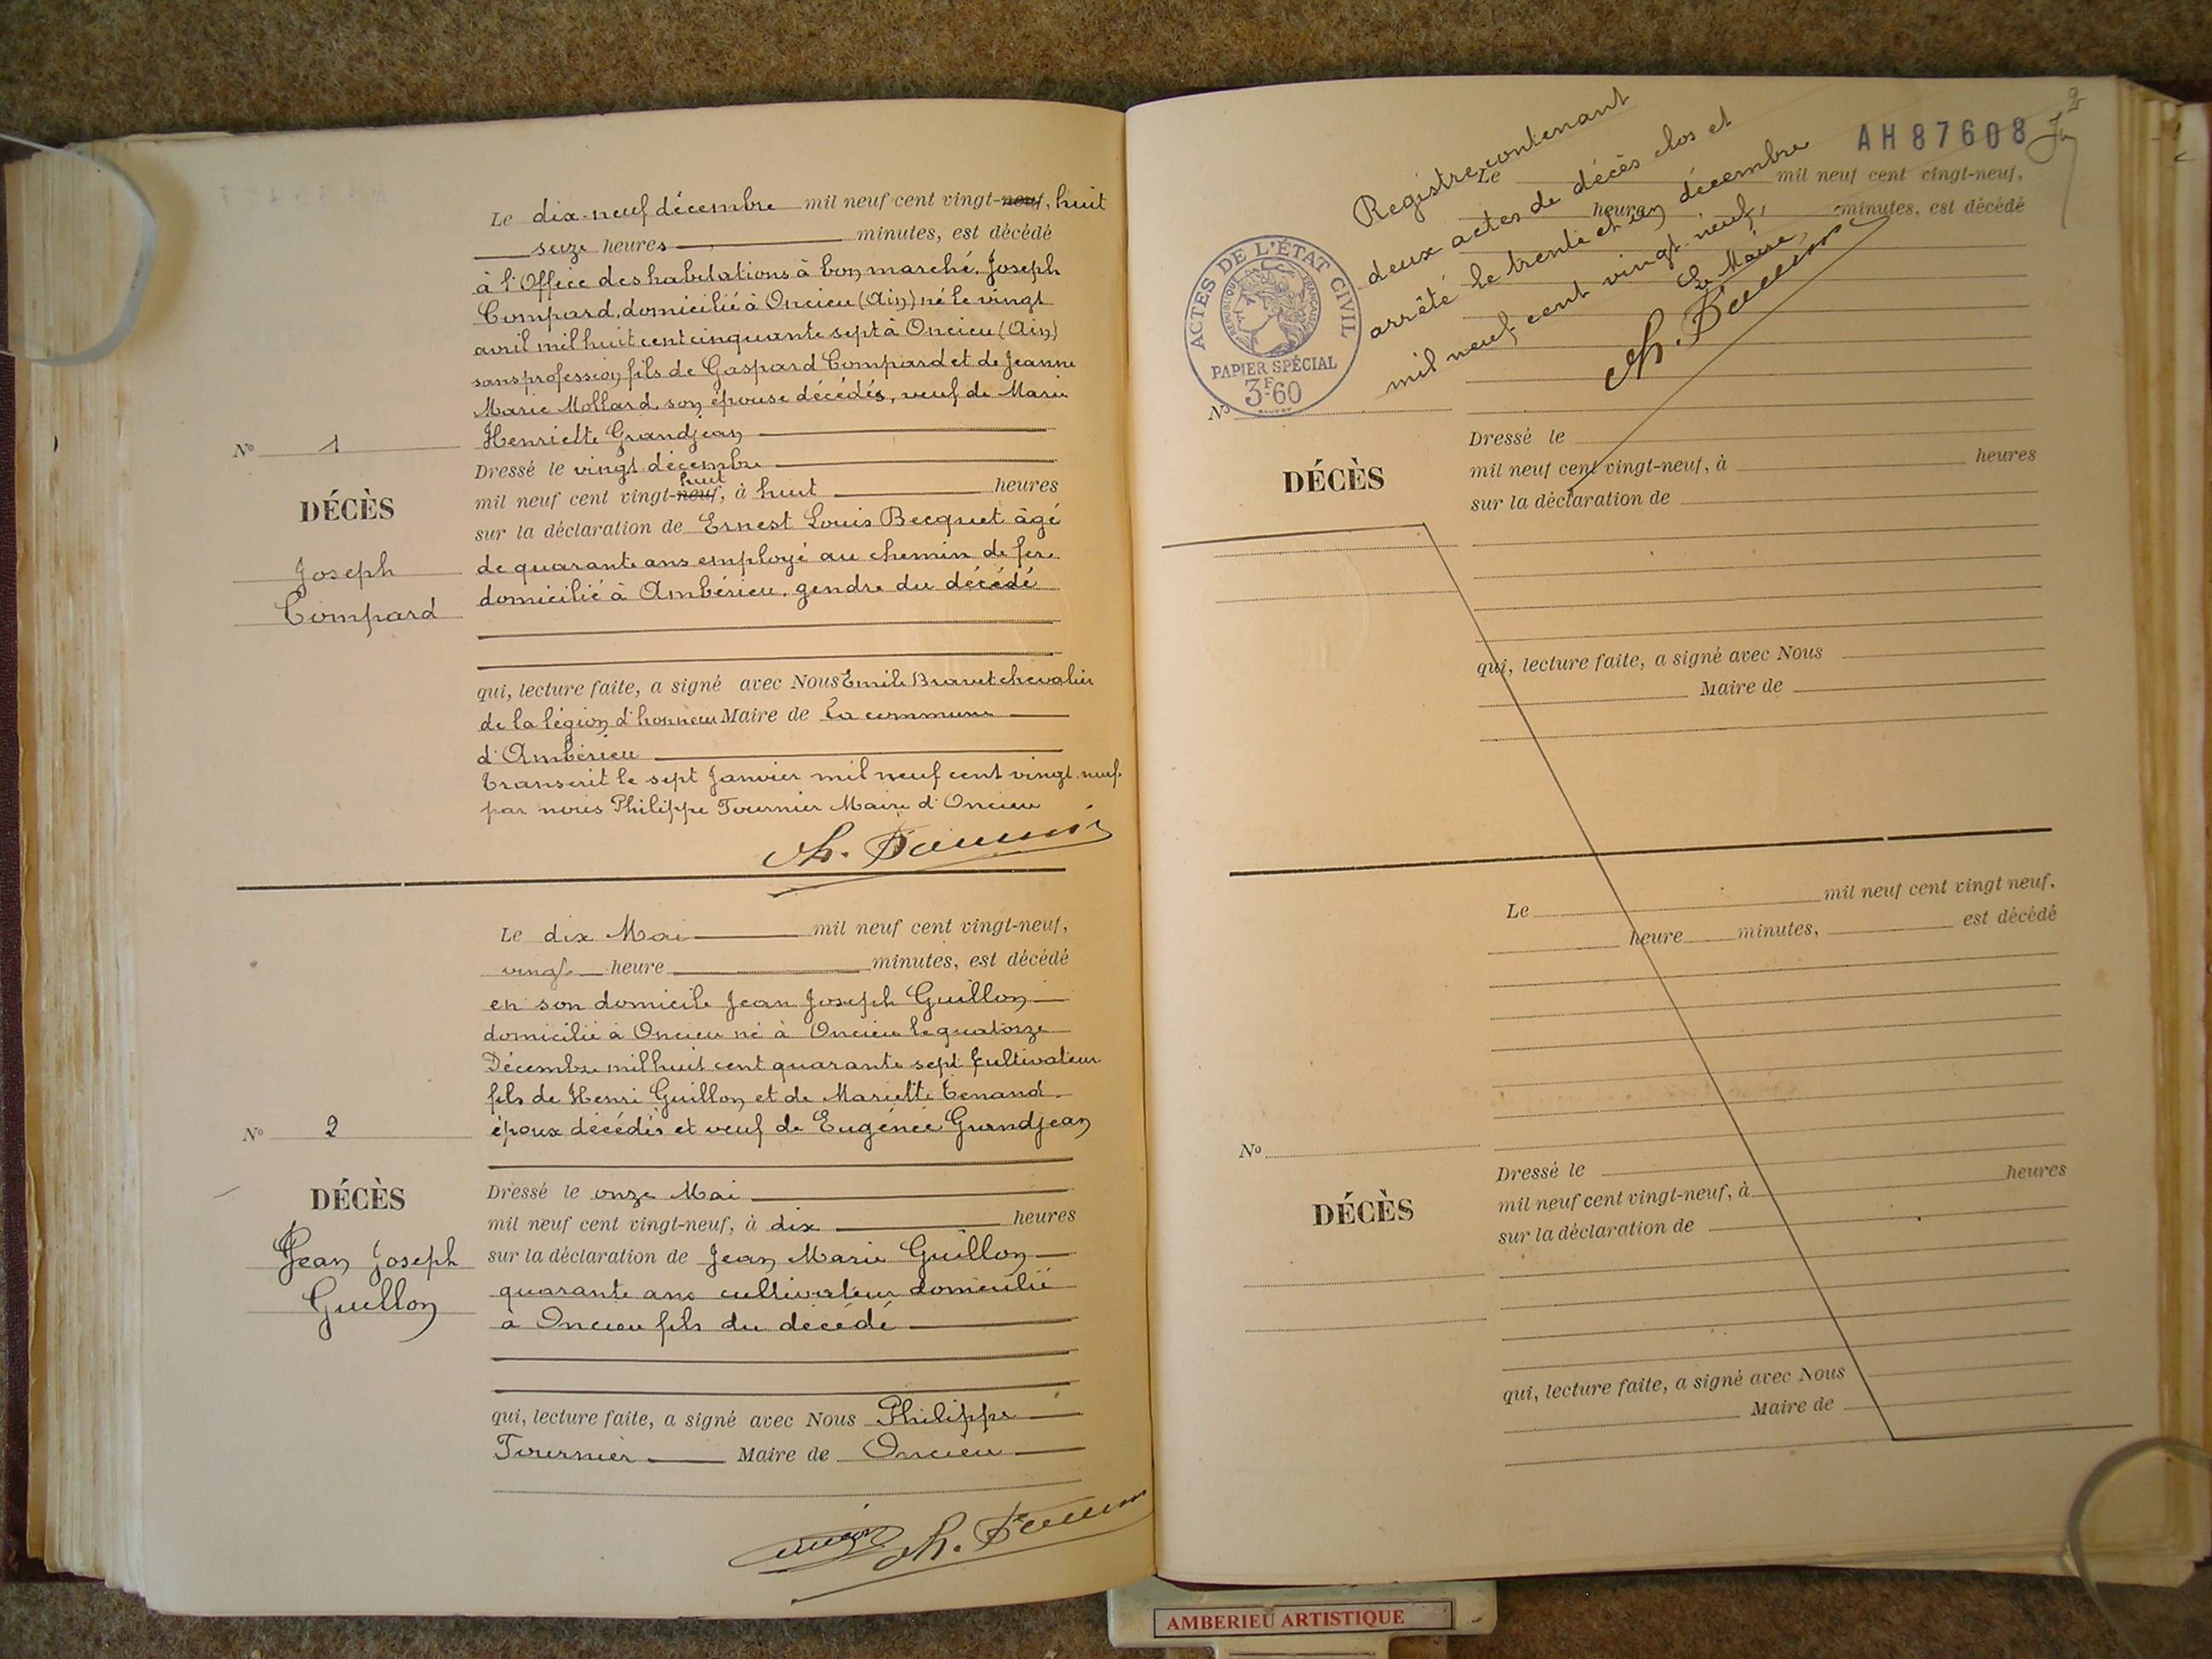 Le dix-neuf décembre mil neuf cent vingt-neuf, huit
seize heures minutes, est décédé
à l'Office des habitations à bon marché, Joseph
Compard, domicilié à Oncieu (Ain) né le vingt
avril mil huit cent cinquante sept à Oncieu (Ain)
sans profession fils de Gaspard Compard et de Jeanne
Marie Mollard son épouse décédés, veuf de Marie
Henriette Grandjean
Nº 1
Dressé le vingt décembre
huit
mil neuf cent vingt-neuf, à huit heures
DÉCÈS
sur la déclaration de Ernest Louis Becquet âgé
de quarante ans employé au chemin de fer
Joseph
domicilié à Ambérieu, gendre du décédé
Compard
qui, lecture faite, a signé avec Nous Emile Bravet chevalier
de la légion d'honneur Maire de La commune
d'Ambérieu
Transcrit le sept Janvier mil neuf cent vingt neuf
par nous Philippe Tournier Maire d'Oncieu
Ph. Tournier
Le dix Mai mil neuf cent vingt-neuf,
vingt heure minutes, est décédé
en son domicile Jean Joseph Guillon
domicilié à Oncieu né à Oncieu le quatorze
Décembre mil huit cent quarante sept cultivateur
fils de Henri Guillon et de Mariette Tenand
époux décédés et veuf de Eugénie Grandjean
Nº 2
DÉCÈS
Dressé le onze Mai
mil neuf cent vingt-neuf, à dix heures
Jean Joseph
sur la déclaration de Jean Marie Guillon
Guillon
quarante ans cultivateur domicilié
à Oncieu fils du décédé
qui, lecture faite, a signé avec Nous Philippe
Tournier Maire de Oncieu
Ph. Tournier
AH 87608
2
Registre contenant
deux actes de décès clos et
arrêté le trente et un décembre
mil neuf cent vingt-neuf,
Le Maire,
Ph. Tournier
Le mil neuf cent vingt-neuf,
heures minutes, est décédé
ACTES DE L'ÉTAT CIVIL
RÉPUBLIQUE FRANÇAISE
PAPIER SPÉCIAL
3F60
Nº
Dressé le
mil neuf cent vingt-neuf, à heures
DÉCÈS
sur la déclaration de
qui, lecture faite, a signé avec Nous
Maire de
Le mil neuf cent vingt neuf,
heure minutes, est décédé
Nº
Dressé le
mil neuf cent vingt-neuf, à heures
DÉCÈS
sur la déclaration de
qui, lecture faite, a signé avec Nous
Maire de
AMBERIEU ARTISTIQUE